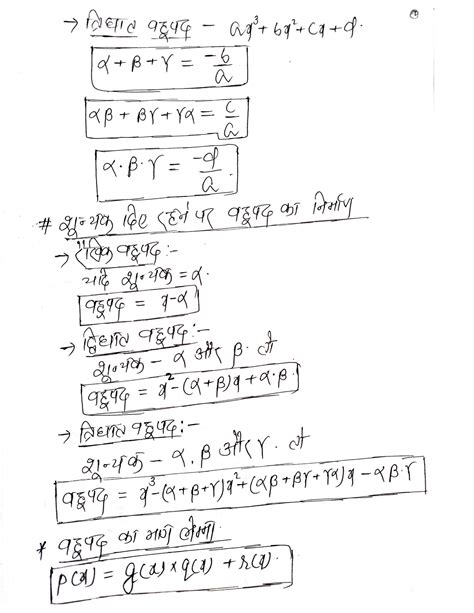 → त्रिघात बहुपद – ax³+bx²+cx+d.
α+β+γ = -b/a
αβ+βγ+γα = c/a
α·β·γ = -d/a.
# शून्यक दिए रहने पर बहुपद का निर्माण
→ रैखिक बहुपद:-
यदि शून्यक = α.
बहुपद = x-α
→ द्विघात बहुपद:-
शून्यक – α और β. तो
बहुपद = x²-(α+β)x+α·β.
→ त्रिघात बहुपद:-
शून्यक – α, β और γ. तो
बहुपद = x³-(α+β+γ)x²+(αβ+βγ+γα)x-αβ·γ
* बहुपद का भाग
p(x) = g(x)×q(x)+r(x).